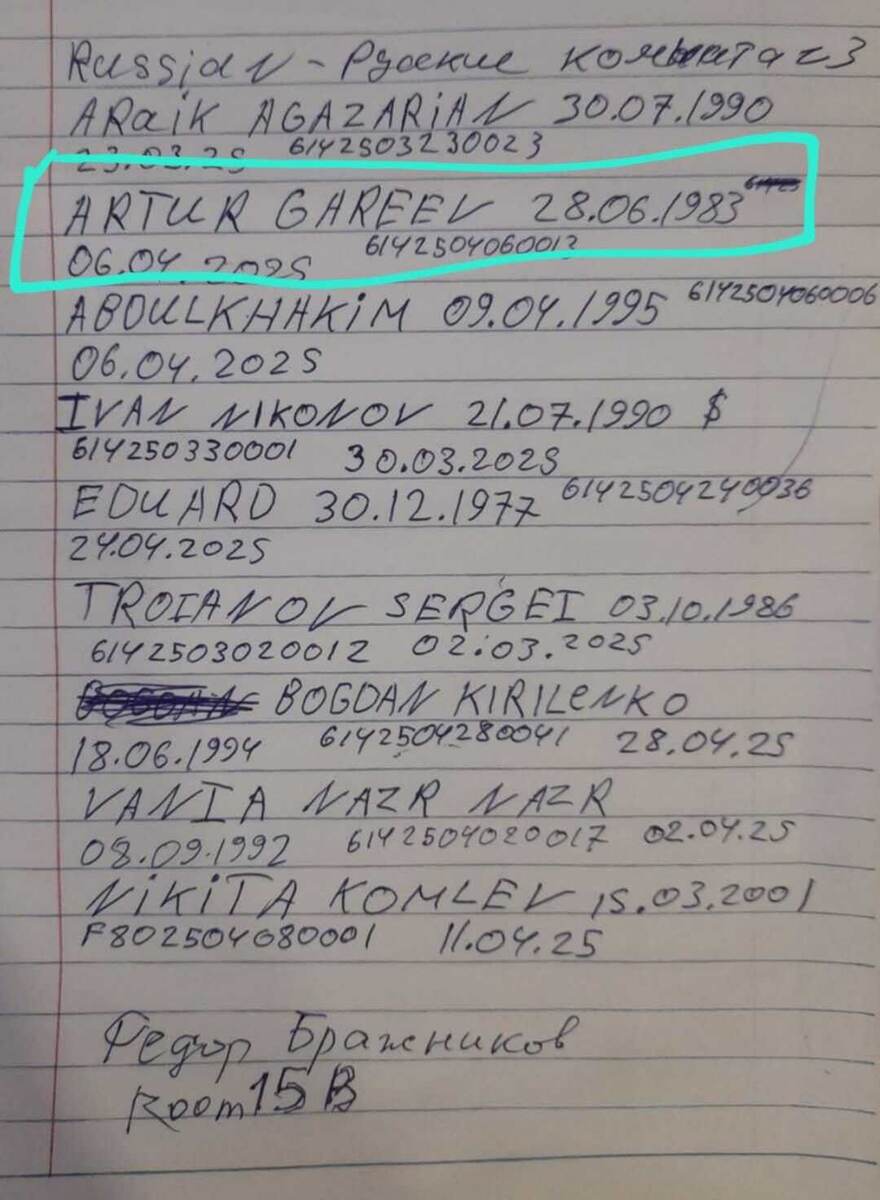 Russian - Русские комната 23
ARAIK AGAZARIAN 30.07.1990
23.03.25 6142503230023
ARTUR GAREEV 28.06.1983
06.04.2025 6142504060012
ABDULKHAKIM 09.04.1995 6142504060006
06.04.2025
IVAN NIKONOV 21.07.1990 $
614250330001 30.03.2025
EDUARD 30.12.1977 6142504240036
24.04.2025
TROIANOV SERGEI 03.10.1986
6142503020012 02.03.2025
BOGDAN KIRILENKO
18.06.1994 6142504280041 28.04.25
VANIA NAZR NAZR
08.09.1992 6142504020017 02.04.25
NIKITA KOMLEV 15.03.2001
F802504080001 11.04.25
Федор Бражников
Room 15 B